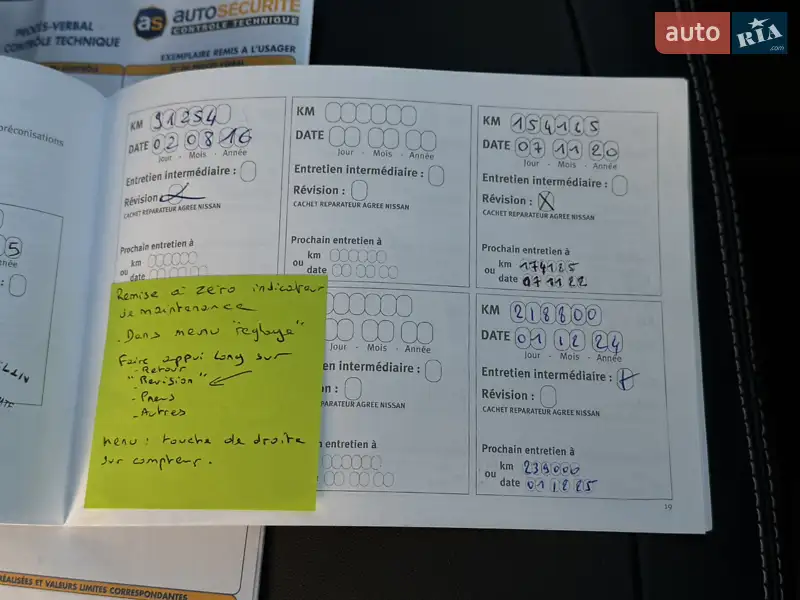 PROCÈS-VERBAL
CONTRÔLE TECHNIQUE
as AUTOSÉCURITÉ
CONTRÔLE TECHNIQUE
EXEMPLAIRE REMIS A L'USAGER
auto RIA .com
préconisations
5
nnée
KM 91254
DATE 02 08 16
Jour - Mois - Année
Entretien intermédiaire :
Révision :
CACHET REPARATEUR AGREE NISSAN
Prochain entretien à
ou km
date
KM
DATE
Jour - Mois - Année
Entretien intermédiaire :
Révision :
CACHET REPARATEUR AGREE NISSAN
Prochain entretien à
ou km
date
KM 154125
DATE 07 11 20
Jour - Mois - Année
Entretien intermédiaire :
Révision : X
CACHET REPARATEUR AGREE NISSAN
Prochain entretien à
ou km 174125
date 071122
Remise à zéro indicateur
de maintenance
. Dans menu "reglage"
Faire appui long sur
- Retour
"Revision"
- Pneus
- Autres
menu : touche de droite
sur compteur.
Jour - Mois - Année
en intermédiaire :
n :
PARATEUR AGREE NISSAN
n entretien à
KM 218800
DATE 01 12 24
Jour - Mois - Année
Entretien intermédiaire :
Révision :
CACHET REPARATEUR AGREE NISSAN
Prochain entretien à
ou km 239000
date 011225
19
RÉALISÉES ET VALEURS LIMITES CORRESPONDANTES